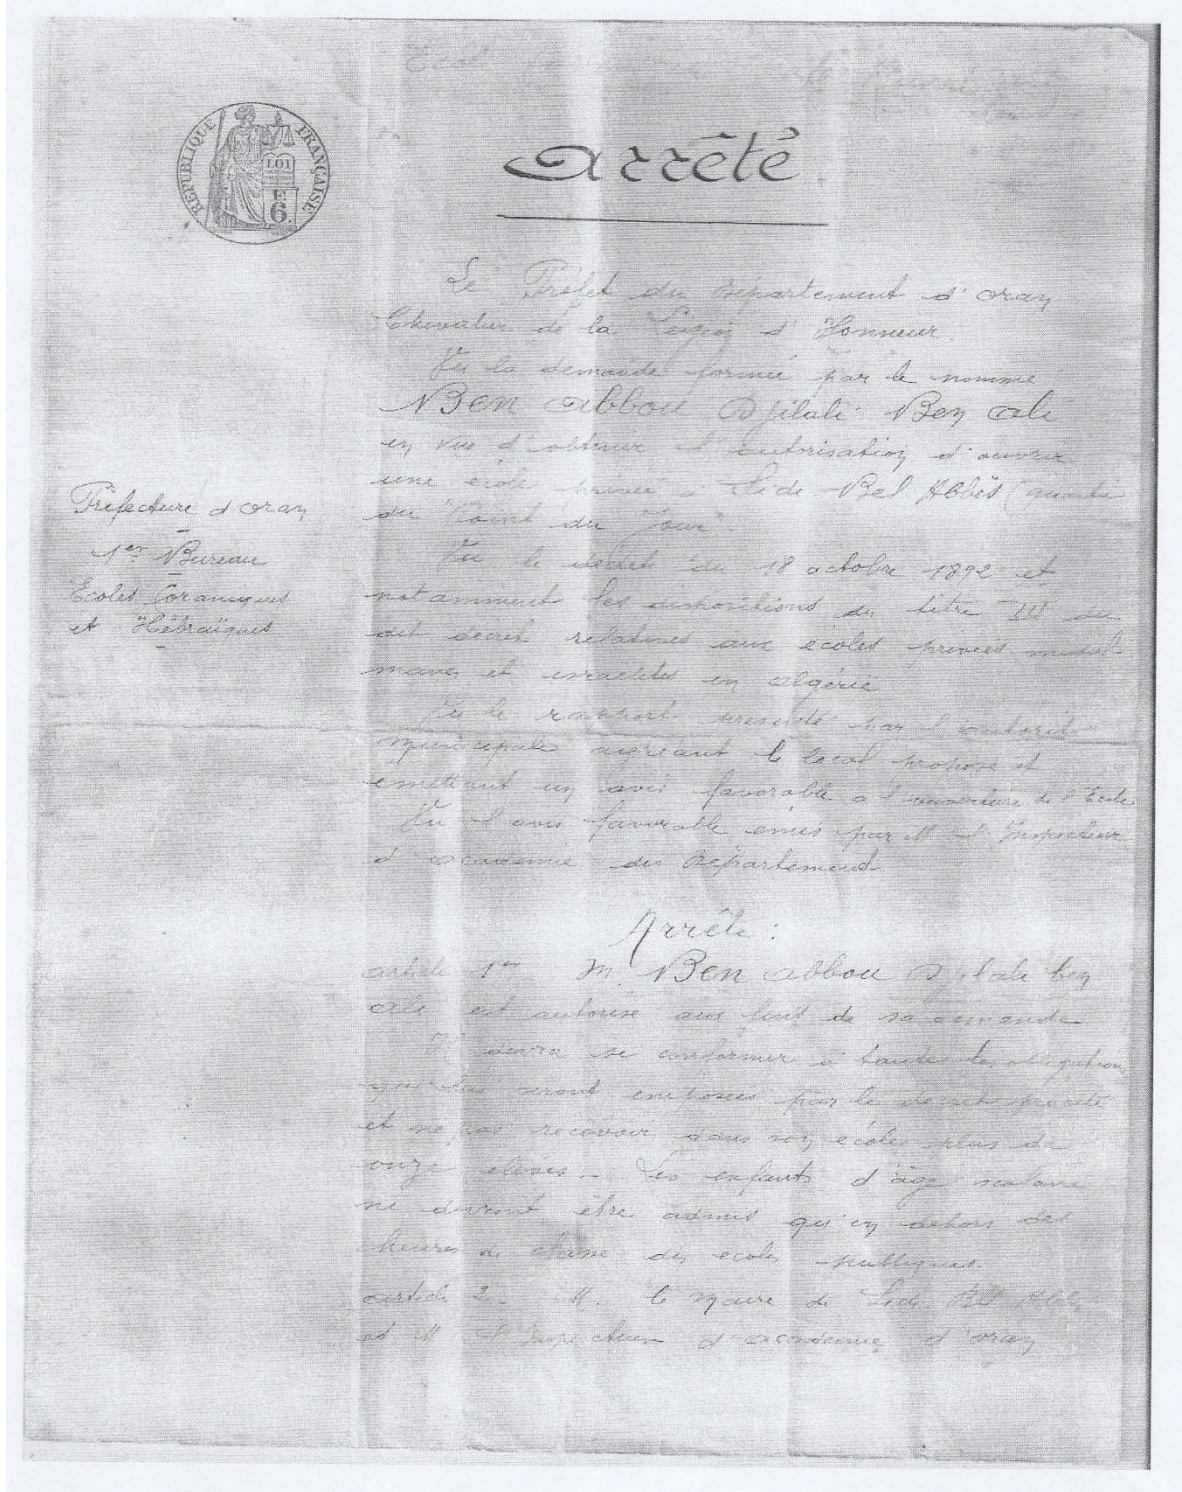 RÉPUBLIQUE FRANÇAISE
LOI
E
6
Arrêté
Le Préfet du Département d'Oran
Chevalier de la Légion d'Honneur.
Vu la demande formée par le nommé
Ben Abbou Djilali Ben Ali
en vue d'obtenir l'autorisation d'ouvrir
une école privée à Sidi Bel Abbès (quartier
du "Point du Jour".
Vu le décret du 18 octobre 1892 et
notamment les dispositions du titre III du
dit décret relatives aux écoles privées musul-
manes et israélites en Algérie
Vu le rapport présenté par l'autorité
municipale agréant le local proposé et
émettant un avis favorable à l'ouverture de l'Ecole
Vu l'avis favorable émis par M. l'Inspecteur
d'académie du Département
Préfecture d'Oran
1er Bureau
Ecoles Coraniques
et Hébraïques
Arrête :
article 1er M. Ben Abbou Djilali ben
Ali est autorisé aux fins de sa demande
Il devra se conformer à toutes les obligations
qui lui seront imposées par le décret précité
et ne pas recevoir dans son école plus de
onze élèves. Les enfants d'âge scolaire
ne devront être admis qu'en dehors des
heures de classe des écoles publiques.
article 2 M. le Maire de Sidi Bel Abbès
et M. l'Inspecteur d'académie d'Oran